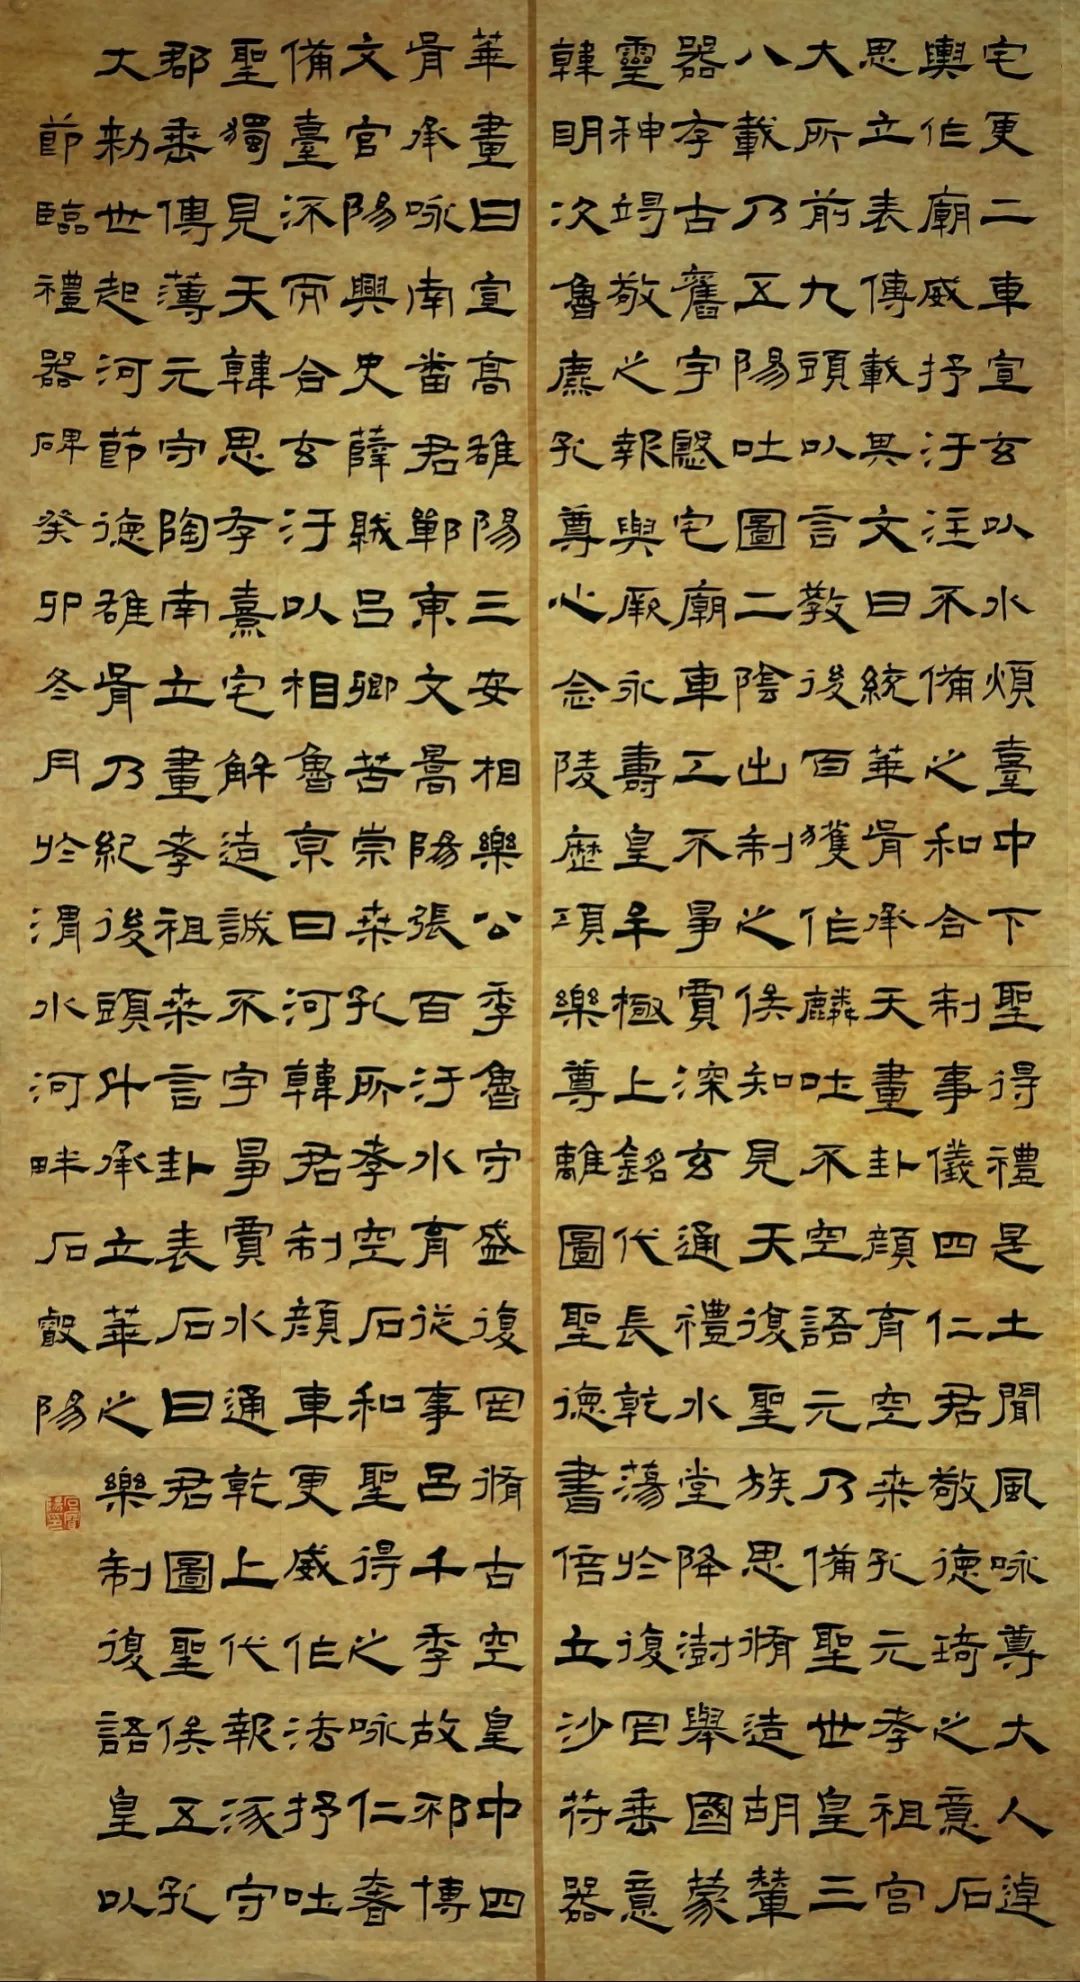 宅更二車宣玄以水煩臺中下聖得禮是土聞風咏尊大人逴
輿作廟威抒汙注不備之和合制事儀四仁君敬德琦之意石
思立表傳載其文曰統華胥承天畫卦顏育空来孔元孝祖宮
大所前九頭以言教後百獲作麟吐不空語元乃備聖世皇三
八載乃五陽吐圖二陰出制之俟知見天復聖族思脩造胡輦
器存古舊宇慇宅廟車工不爭賈深玄通禮水堂降澍舉國蒙
靈神竭敬之報與厥永壽皇極上銘代長乾蕩於復罔垂意
韓明次魯麃孔尊心念陵歷項樂尊離圖聖德書倍五沙符器
華畫曰宣高雒陽三安相樂公季魯守盛復罔脩古空皇中四
胥承咏南番君鄲東文暠陽張百汙水育從事呂千季故邳博
文官陽興史薛戝呂卿苦崇桒孔所孝空石和聖得之咏仁
備臺深而合玄汙以相魯京曰河韓君制顏車更威作法抒吐
聖獨見天韓思存熹宅解造誠不宇爭賈水通乾上代報涿守
郡垂傳薄元守陶南立畫孝祖桒言卦表石曰君圖聖俟五孔
大勑世起河節德雒胥乃紀後頭升承立華之樂制復語皇以
節臨禮器碑癸卯冬月於渭水河畔石叡陽